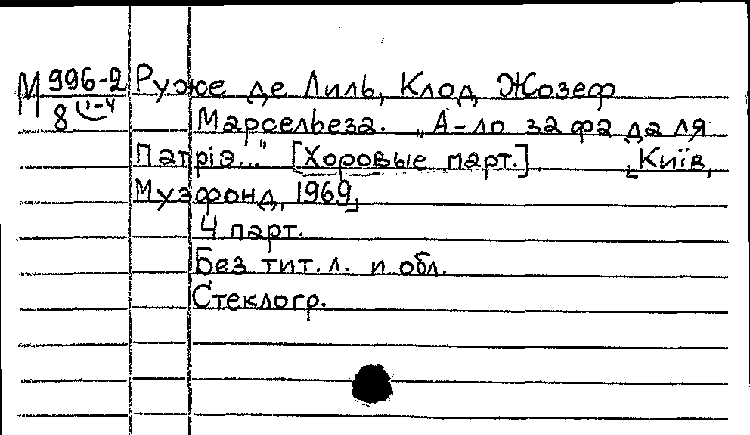 М 996-2 Руже де Лиль, Клод Жозеф
8 (1-4
Марсельеза. „А-ло за фа да ля
Патріэ..." [Хоровые парт.] [Київ,
Музфонд, 1969]
4 парт.
Без тит. л. и обл.
Стеклогр.